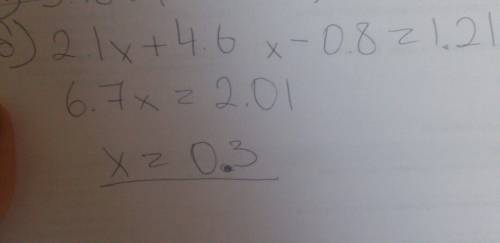 б) 2.1x + 4.6 x - 0.8 = 1.21
6.7x = 2.01
x = 0.3